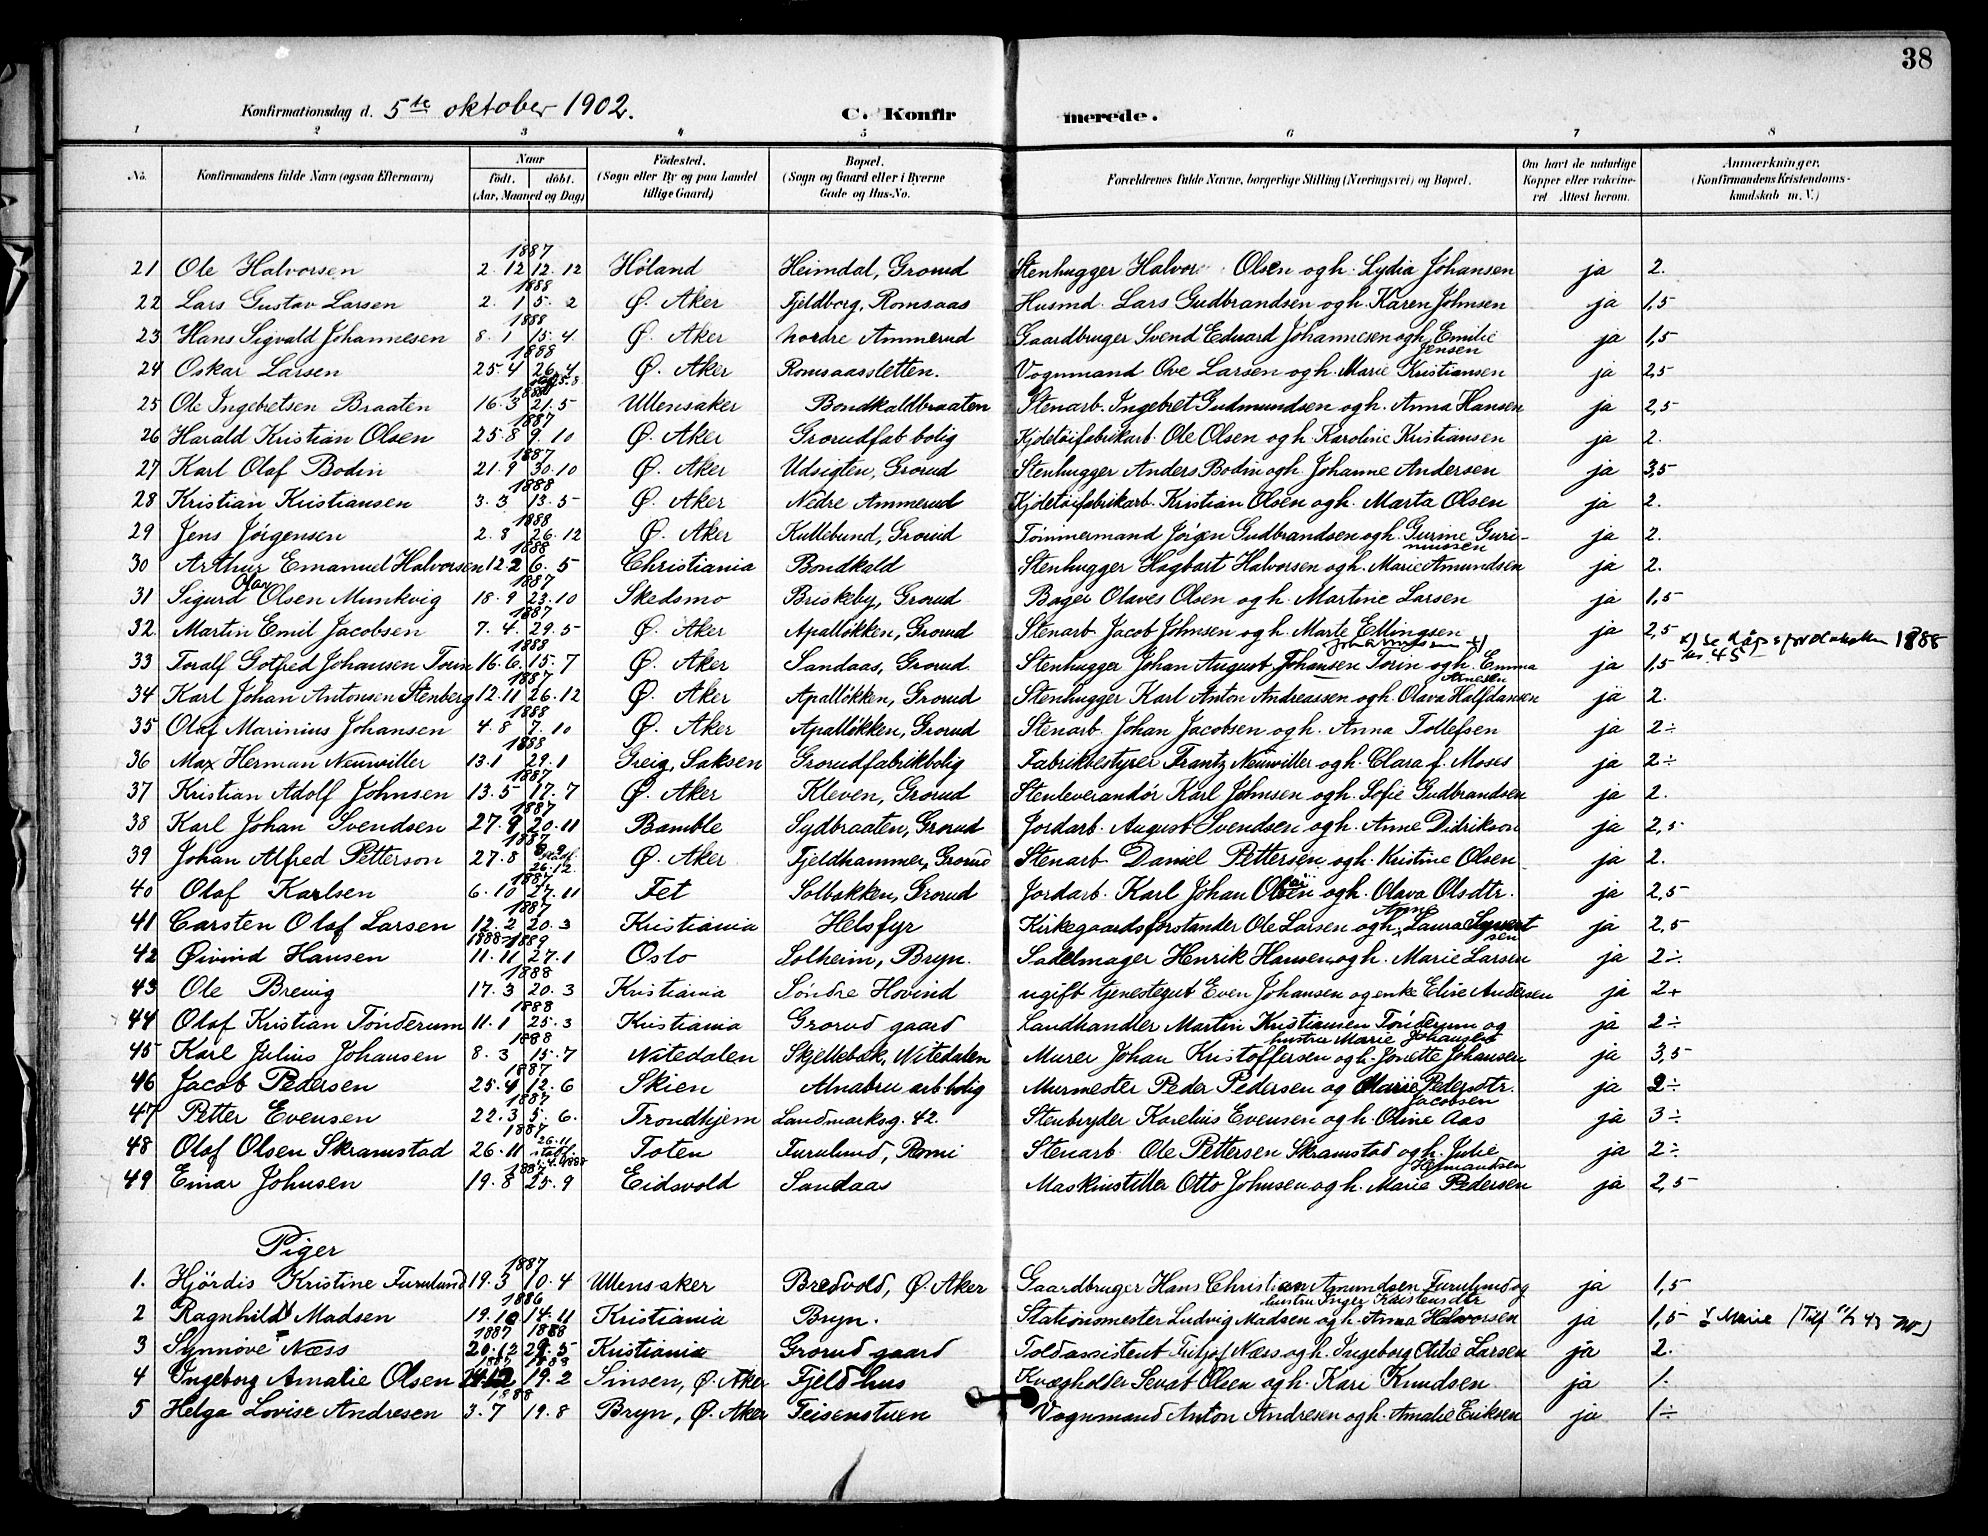 38
Konfirmationsdag d. 5te oktober 1902. C. Konfirmerede.
1 2 3 4 5 6 7 8
No. Konfirmandens fulde Navn (ogsaa Efternavn) Naar født. døbt. (Aar, Maaned og Dag) Fødested. (Sogn eller By og paa Landet tillige Gaard) Bopæl. (Sogn og Gaard eller i Byerne Gade og Hus-No. Forældrenes fulde Navne, borgerlige Stilling (Næringsvei) og Bopæl. Om havt de naturlige Kopper eller vakcineret Attest herom. Anmærkninger. (Konfirmandens Kristendomskundskab m. V.)
21 Ole Halvorsen 1887 2.12 12.12 Høland Heimdal, Grorud Stenhugger Halvor Olsen og h. Lydia Johansen ja 2.
22 Lars Gustav Larsen 1888 2.1 5.2 Ø. Aker Fjeldborg, Romsaas Husmd. Lars Gudbrandsen og h. Karen Johnsen ja 1,5
23 Hans Sigvald Johannesen 1888 8.1 15.4 Ø. Aker nordre Ammerud Gaardbruger Svend Eduard Johannesen og h. Emilie Jensen ja 1,5
24 Oskar Larsen 1888 25.4 26.4 Ø. Aker Romsaassletten. Vognmand Ove Larsen og h. Marie Kristiansen ja 2,5
25 Ole Ingebretsen Braaten 16.3 21.5 Ullensaker Bondkaldbraaten Stenarb. Ingebret Gudmundsen og h. Anna Hansen ja 2,5
26 Harald Kristian Olsen 1887 25.8 9.10 Ø. Aker Grorudfab bolig Kjoletøifabrikarb. Ole Olsen og h. Karoline Kristiansen ja 2.
27 Karl Olaf Bodin 1887 21.9 30.10 Ø. Aker Udsigten, Grorud Stenhugger Anders Bodin og h. Johanne Andersen ja 3,5
28 Kristian Kristiansen 1888 3.3 13.5 Ø. Aker Nedre Ammerud Kjoletøifabrikarb. Kristian Olsen og h. Marta Olsen ja 2.
29 Jens Jörgensen 1888 2.8 26.12 Ø. Aker Kullebund, Grorud Tømmermand Jörgen Gudbrandsen og h. Gurine ja 2.
30 Arthur Emanuel Halvorsen 1888 12.2 6.5 Christiania Bondkald Stenhugger Hagbart Halvorsen og h. Marie Amundsen ja 2.
31 Sigurd Olav Olsen Munkvig 1887 18.9 23.10 Skedsmo Briskeby, Grorud Bager Olaves Olsen og h. Martine Larsen ja 1,5
32. Martin Emil Jacobsen 1887 7.4. 29.5 Ø. Aker Apalløkken, Grorud Stenarb Jacob Johnsen og h. Marte Ellingsen ja 2,5
33 Toralf Gotfred Johansen Torin 1887 16.6. 15.7 Ø. Aker Sandaas, Grorud Stenhugger Johan August Johansen Torin og h. Emma Arnesen ja 1,5 x) se dåpsprotokollen 1888 nr. 45
34 Karl Johan Antonsen Stenberg 1887 12.11 26.12 Ø. Aker Apalløkken, Grorud Stenhugger Karl Anton Andreassen og h. Olava Halfdansen ja 2.
35 Olaf Marinius Johansen 1888 4.8 7.10 Ø. Aker Apalløkken, Grorud Stenarb. Johan Jacobsen og h. Anna Tollefsen ja 2÷
36 Max Herman Neuwiller 1888 13.1 29.1 Greiz, Saksen Grorudfabrikbolig Fabrikbestyrer Frantz Neuwiller og h. Clara f. Moses ja 2÷
37 Kristian Adolf Johnsen 1887 13.5 17.7 Ø. Aker Kleven, Grorud Stenleverandör Karl Johnsen og h. Sofie Gudbrandsen ja 2.
38 Karl Johan Svendsen 1887 27.9 20.11 Bamble Sydbraaten, Grorud Jordarb. August Svendsen og h. Anne Didrikson ja 2,5
39 Johan Alfred Petterson 1887 27.8 26.12. Ø. Aker Fjeldhammer, Grorud Stenarb Daniel Pettersen og h. Kristine Olsen ja 2.
40 Olaf Karlsen 1887 6.10 27.11 Fet Solbakken, Grorud Jordarb. Karl Johan og h. Olava Olsdtr. ja 2,5
41 Carsten Olaf Larsen 1887 12.2 20.3 Kristiania Helsfyr Kirkegaardsforstander Ole Larsen og h. Anne Laura ja 2,5
42 Øivind Hansen 1888 1889 11.11 27.1 Oslo Solheim, Bryn. Sadelmager Henrik Hansen og h. Marie Larsen ja 2÷
43 Ole Brevig 1888 17.3 20.3 Kristiania Söndre Hovind ugift tjenestegut Even Johansen og enke Elise Andersen ja 2+
44 Olaf Kristian Tönderum 1888 11.1 25.3 Kristiania Grorud gaard Landhandler Martin Kristiansen Tönderum og hustru Marie ja 2÷
45 Karl Julius Johansen 1888 8.3 15.7 Nitedalen Skjellebæk, Nitedalen Murer Johan Kristoffersen og h. Jonette Johansen ja 3,5
46 Jacob Pedersen 1887 25.4 12.6 Skien Alnabru arb bolig Murmester Peder Pedersen og Marie Pedersdtr. Jacobsen ja 2÷
47 Petter Evensen 1887 22.3 5.6. Trondhjem Landmarksg. 42. Stenbryder Karelius Evensen og h. Oline Aas ja 3÷
48 Olaf Olsen Skramstad 1887 26.11 26.11 stadf. Toten Furulund, Romi Stenarb. Ole Pettersen Skramstad og h. Julie ja 2÷
49 Einar Johnsen 1887 19.8 25.9 Eidsvold Sandaas Maskinstiller Otto Johnsen og h. Marie Pedersen ja 2,5
Piger
1. Hjördis Kristine Furulund 1887 19.3 10.4 Ullensaker Bredvold, Ø. Aker Gaardbruger Hans Christian Amundsen Furulund og hustru Inger Kristensdtr ja 1,5
2 Ragnhild Madsen 1886 19.10 14.11 Kristiania Bryn. Stationsmester Ludvig Madsen og h. Anna Halvorsen ja 1,5 Marie
3 Synnöve Næss 1887 1888 20.12 29.5 Kristiania Grorud gaard Toldassistent Fritjof Næss og h. Ingeborg Otilie Larsen ja 2.
4 Ingeborg Amalie Olsen 1887 1888 19.2 Sinsen, Ø. Aker Fjeldhus Kvægholder Sevat Olsen og h. Kari Knudsen ja 1.
5 Helga Lovise Andresen 1888 3.7 19.8 Bryn, Ø. Aker Teisenstuen Vognmand Anton Andresen og h. Amalie Eriksen ja 1÷